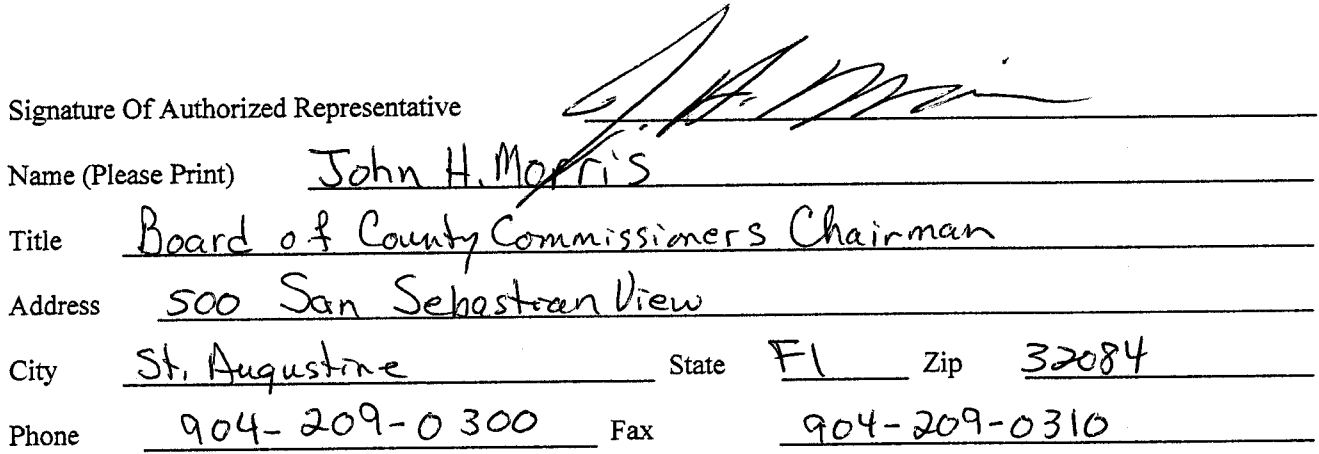 Signature Of Authorized Representative J. H. Morris
Name (Please Print) John H. Morris
Title Board of County Commissioners Chairman
Address 500 San Sebastian View
City St. Augustine State Fl Zip 32084
Phone 904-209-0300 Fax 904-209-0310